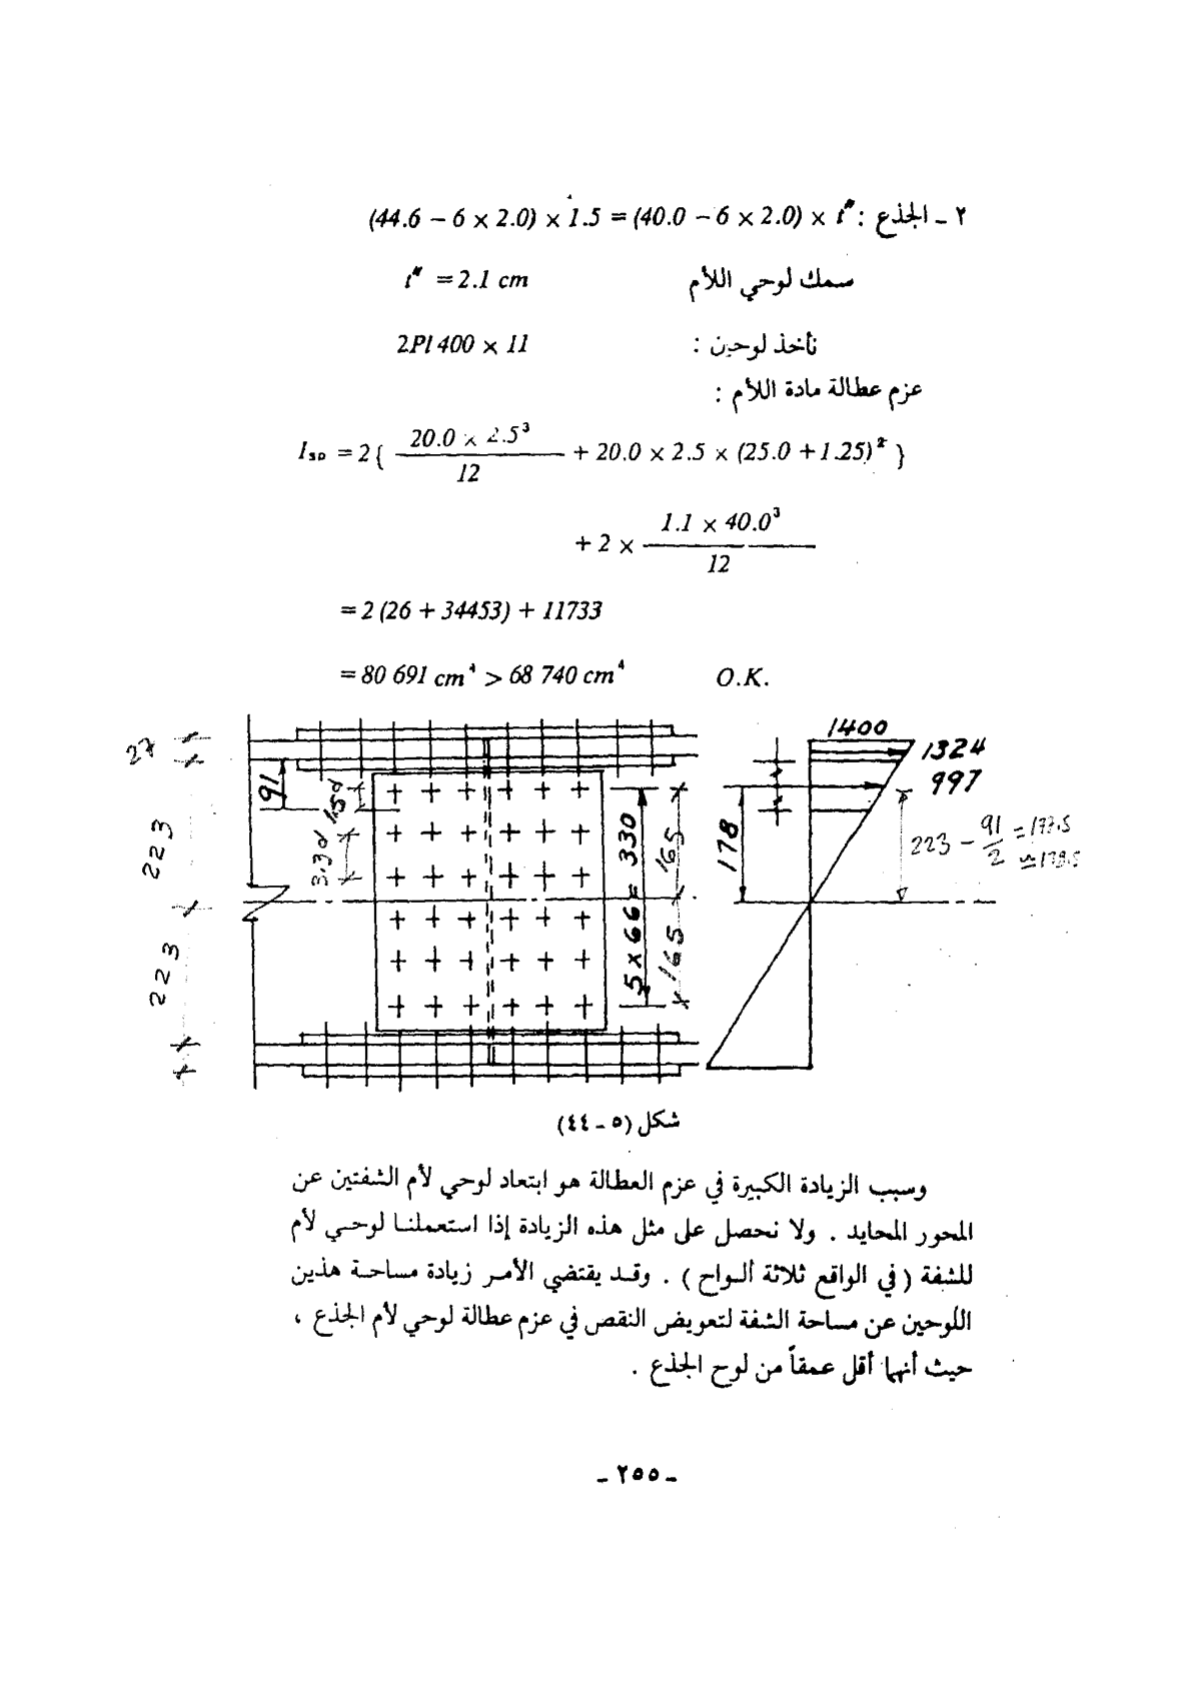 ٢ ـ الجذع : (44.6 − 6 × 2.0) × 1.5 = (40.0 − 6 × 2.0) × t"
سمك لوحي اللأم t" = 2.1 cm
نأخذ لوحين : 2Pl 400 × 11
عزم عطالة مادة اللأم :
I = 2 { 20.0 × 2.5³ / 12 + 20.0 × 2.5 × (25.0 + 1.25)² }
+ 2 × 1.1 × 40.0³ / 12
= 2 (26 + 34453) + 11733
= 80 691 cm⁴ > 68 740 cm⁴ O.K.
27
91
1.5d
3.3d
223
223
5 × 66 = 330
165
165
1400
1324
997
178
223 − 91/2 = 177.5
شكل (٥ ـ ٤٤)
وسبب الزيادة الكبيرة في عزم العطالة هو ابتعاد لوحي لأم الشفتين عن
المحور المحايد . ولا نحصل على مثل هذه الزيادة إذا استعملنا لوحي لأم
للشفة ( في الواقع ثلاثة ألواح ) . وقد يقتضي الأمر زيادة مساحة هذين
اللوحين عن مساحة الشفة لتعويض النقص في عزم عطالة لوحي لأم الجذع ،
حيث أنهما أقل عمقاً من لوح الجذع .
ـ ٢٥٥ ـ